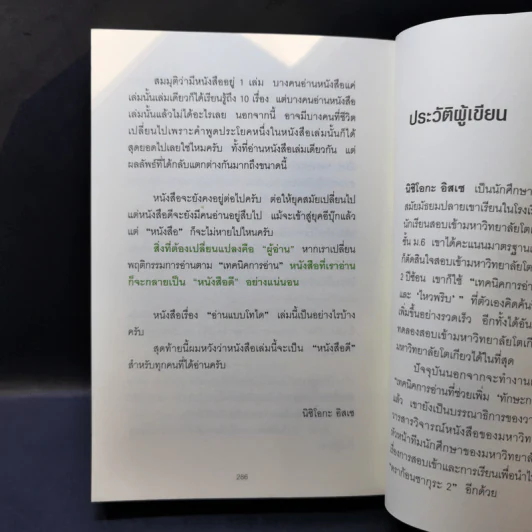 สมมุติว่ามีหนังสืออยู่ 1 เล่ม บางคนอ่านหนังสือแค่
เล่มนั้นเล่มเดียวก็ได้เรียนรู้ถึง 10 เรื่อง แต่บางคนอ่านหนังสือ
เล่มนั้นแล้วไม่ได้อะไรเลย นอกจากนี้ อาจมีบางคนที่ชีวิต
เปลี่ยนไปเพราะคำพูดประโยคหนึ่งในหนังสือเล่มนั้นก็ได้
สุดยอดไปเลยใช่ไหมครับ ทั้งที่อ่านหนังสือเล่มเดียวกัน แต่
ผลลัพธ์ที่ได้กลับแตกต่างกันมากถึงขนาดนี้
หนังสือจะยังคงอยู่ต่อไปครับ ต่อให้ยุคสมัยเปลี่ยนไป
แต่หนังสือดีจะยังมีคนอ่านอยู่สืบไป แม้จะเข้าสู่ยุคอีบุ๊กแล้ว
แต่ "หนังสือ" ก็จะไม่หายไปไหนครับ
สิ่งที่ต้องเปลี่ยนแปลงคือ "ผู้อ่าน" หากเราเปลี่ยน
พฤติกรรมการอ่านตาม "เทคนิคการอ่าน" หนังสือที่เราอ่าน
ก็จะกลายเป็น "หนังสือดี" อย่างแน่นอน
หนังสือเรื่อง "อ่านแบบโทได" เล่มนี้เป็นอย่างไรบ้าง
ครับ
สุดท้ายนี้ผมหวังว่าหนังสือเล่มนี้จะเป็น "หนังสือดี"
สำหรับทุกคนที่ได้อ่านครับ
นิชิโอกะ อิสเซ
286
ประวัติผู้เขียน
นิชิโอกะ อิสเซ เป็นนักศึกษา
สมัยมัธยมปลายเขาเรียนในโรงเรี
นักเรียนสอบเข้ามหาวิทยาลัยโต
ชั้น ม.6 เขาได้คะแนนมาตรฐาน
ก็ตัดสินใจสอบเข้ามหาวิทยาลัยโต
2 ปีซ้อน เขาก็ใช้ "เทคนิคการอ่าน
และ "ไหวพริบ" ที่ตัวเองคิดค้น
เพิ่มขึ้นอย่างรวดเร็ว อีกทั้งได้อัน
ทดลองสอบเข้ามหาวิทยาลัยโตเกี
มหาวิทยาลัยโตเกียวได้ในที่สุด
ปัจจุบันนอกจากจะทำงาน
"เทคนิคการอ่านที่ช่วยเพิ่ม 'ทักษะก
แล้ว เขายังเป็นบรรณาธิการของวา
การสารวิจารณ์หนังสือของมหาวิท
หัวหน้าทีมนักศึกษาของมหาวิทยาลั
เรื่องการสอบเข้าและการเรียนเพื่อนำไ
"ดราก้อนซากุระ 2" อีกด้วย